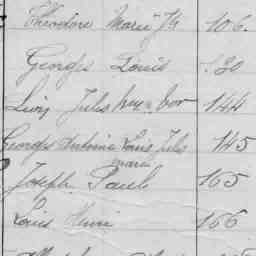 Theodore Marie 106.
Georges Louis 130
Jules 144
Georges Antoine Louis Jules 145
Marie
Joseph Paul 165
Louis Henri 166